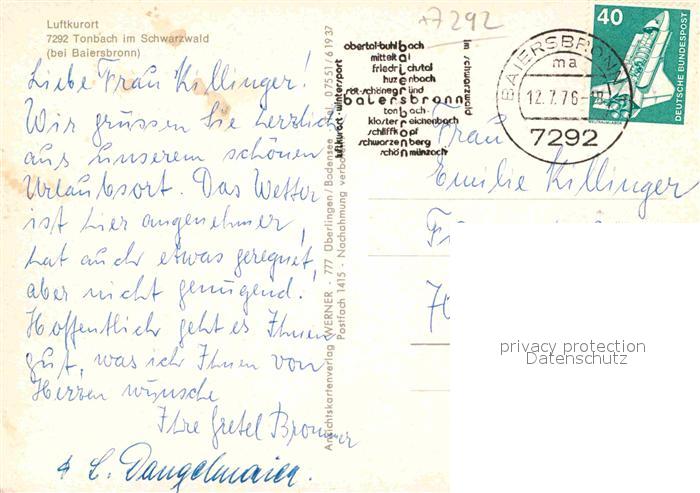 Luftkurort
7292 Tonbach im Schwarzwald
(bei Baiersbronn)
Liebe Frau Killinger!
Wir grüssen Sie herzlich
aus unserem schönen
Urlaubsort. Das Wetter
ist hier angenehmer,
hat auch etwas geregnet,
aber nicht genügend.
Hoffentlich geht es Ihnen
gut, was ich Ihnen von
Herzen wünsche
Ihre Gretel Bronner
& L. Dangelmaier.
Ansichtskartenverlag WERNER - 777 Überlingen/Bodensee 07551/61937
Postfach 1415 - Nachahmung verboten
+7292
luftkurort · wintersport
im schwarzwald
obertal-buhlbach
mitteltal
friedrichstal
huzenbach
röt-schönegründ
baiersbronn
tonbach
klosterreichenbach
schliffkopf
schwarzenberg
schönmünzach
BAIERSBRONN
ma
12.7.76-17
7292
40
DEUTSCHE BUNDESPOST
Frau
Emilie Killinger
privacy protection
Datenschutz